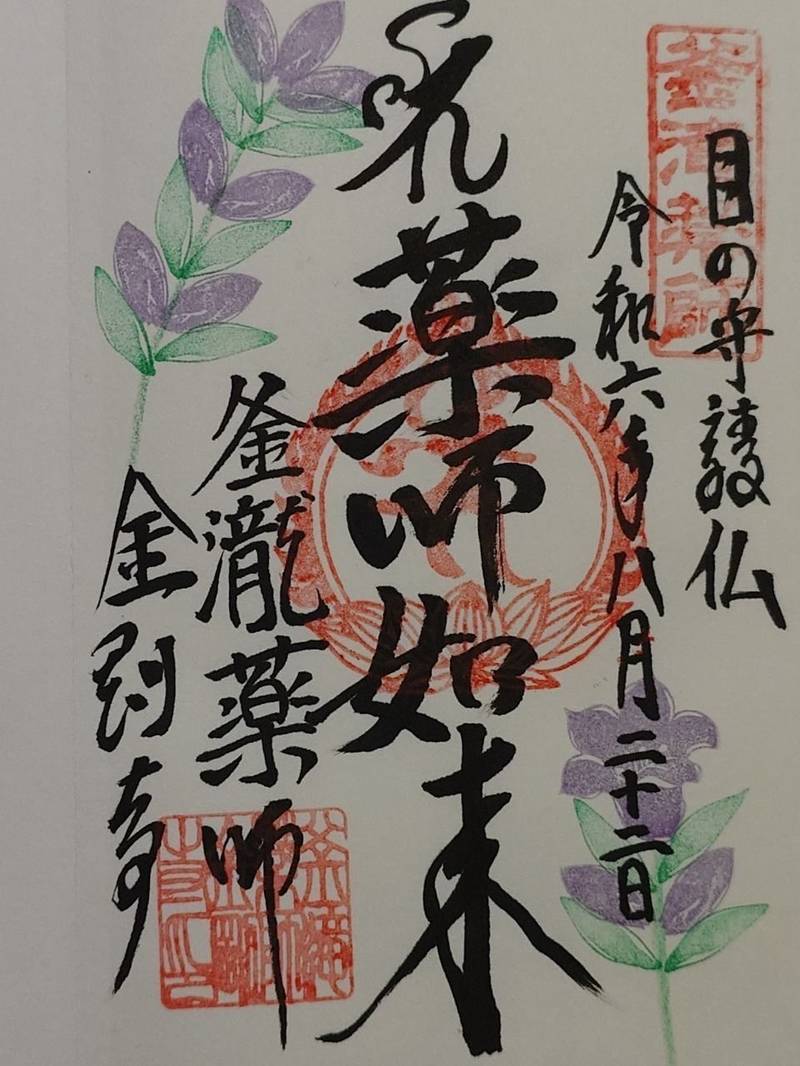 釜滝薬師
目の守護仏
令和六年八月二十二日
薬師如来
釜瀧薬師
金剛寺